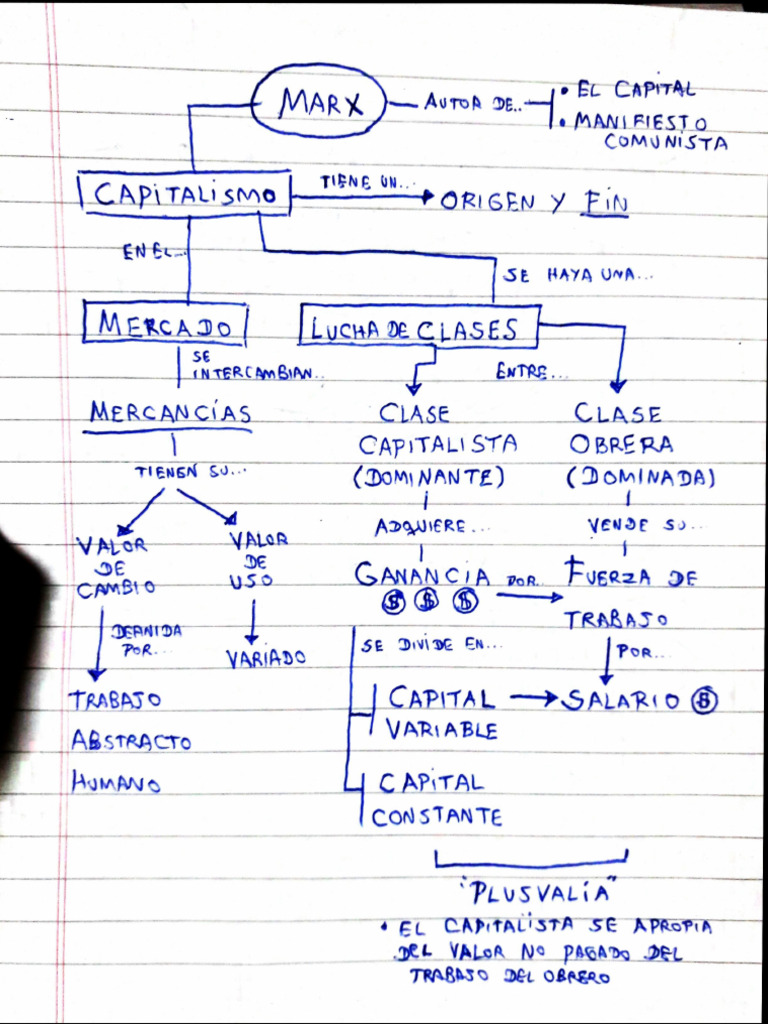 MARX
AUTOR DE..
• EL CAPITAL
• MANIFIESTO
COMUNISTA
CAPITALISMO
TIENE UN...
ORIGEN Y FIN
EN EL...
SE HAYA UNA...
MERCADO
LUCHA DE CLASES
SE
INTERCAMBIAN..
ENTRE...
MERCANCÍAS
TIENEN SU...
VALOR
DE
CAMBIO
VALOR
DE
USO
DEFINIDA
POR...
VARIADO
TRABAJO
ABSTRACTO
HUMANO
CLASE
CAPITALISTA
(DOMINANTE)
ADQUIERE...
GANANCIA
$ $ $
POR..
CLASE
OBRERA
(DOMINADA)
VENDE SU...
FUERZA DE
TRABAJO
POR...
SALARIO $
SE DIVIDE EN...
CAPITAL
VARIABLE
CAPITAL
CONSTANTE
"PLUSVALÍA"
• EL CAPITALISTA SE APROPIA
DEL VALOR NO PAGADO DEL
TRABAJO DEL OBRERO